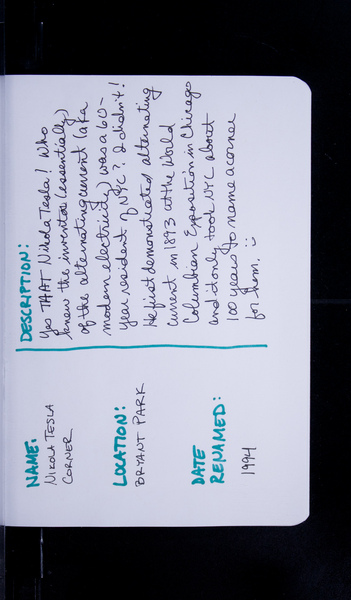 NAME:
NIKOLA TESLA
CORNER
LOCATION:
BRYANT PARK
DATE
RENAMED:
1994
DESCRIPTION:
Yes THAT Nikola Tesla! Who
knew the inventor (essentially)
of the alternating current (aka
modern electricity) was a 60-
year resident of NYC? I didn't!
He first demonstrated alternating
current in 1893 at the World
Columbian Exposition in Chicago
and it only took NYC about
100 years to name a corner
for him. :)